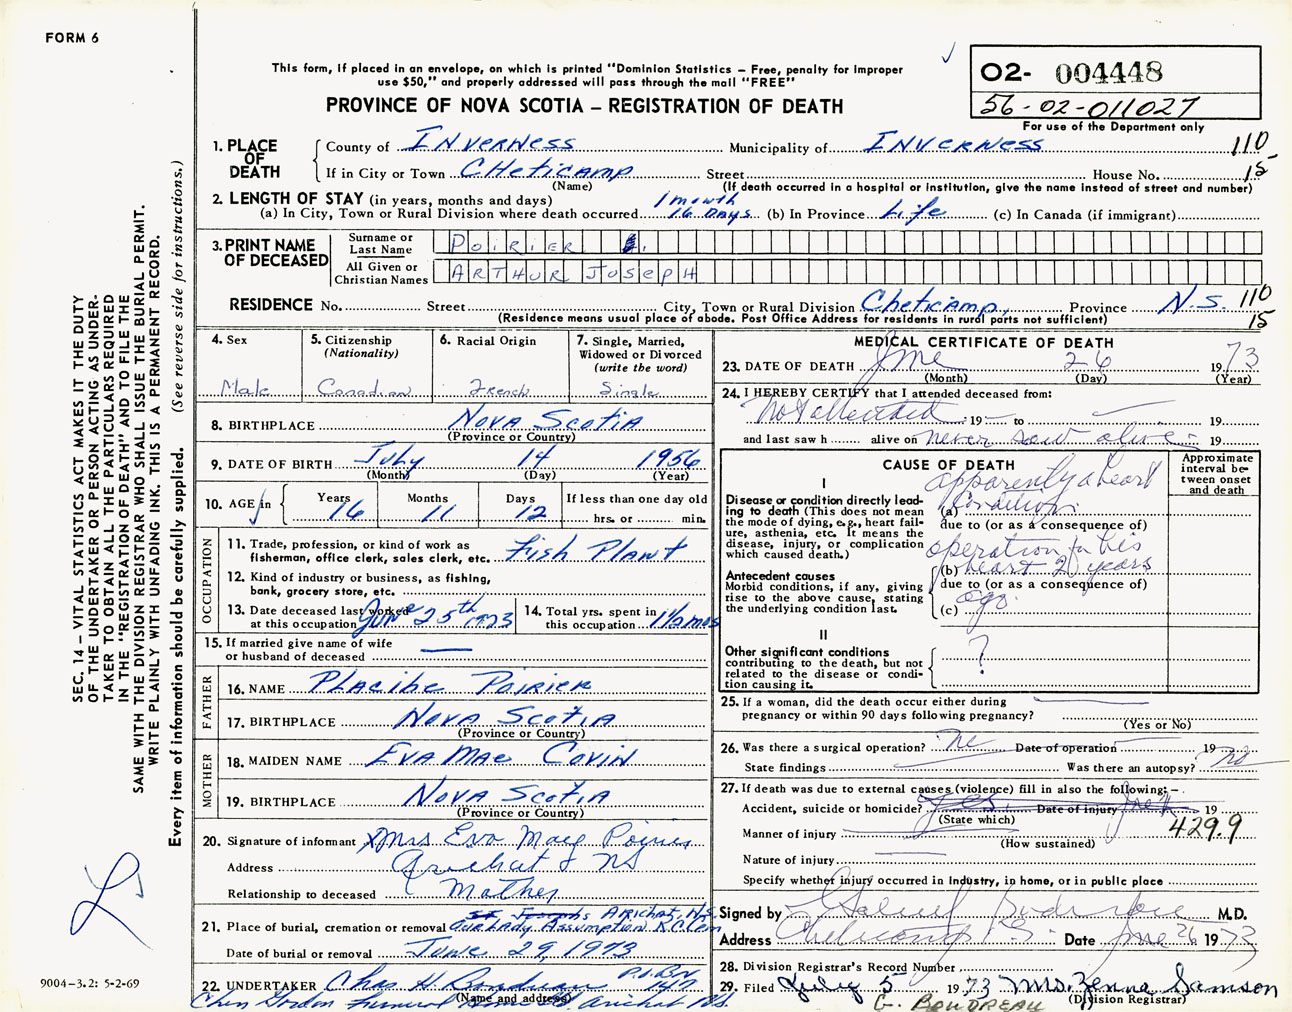 FORM 6
This form, if placed in an envelope, on which is printed "Dominion Statistics – Free, penalty for improper
use $50," and properly addressed will pass through the mail "FREE"
PROVINCE OF NOVA SCOTIA – REGISTRATION OF DEATH
02- 004448
56-02-011027
For use of the Department only
SEC. 14 – VITAL STATISTICS ACT MAKES IT THE DUTY
OF THE UNDERTAKER OR PERSON ACTING AS UNDER-
TAKER TO OBTAIN ALL THE PARTICULARS REQUIRED
IN THE "REGISTRATION OF DEATH" AND TO FILE THE
SAME WITH THE DIVISION REGISTRAR WHO SHALL ISSUE THE BURIAL PERMIT.
WRITE PLAINLY WITH UNFADING INK. THIS IS A PERMANENT RECORD.
Every item of information should be carefully supplied. (See reverse side for instructions.)
1. PLACE OF DEATH
County of Inverness Municipality of Inverness 110
If in City or Town Cheticamp Street House No. 15
(Name) (If death occurred in a hospital or institution, give the name instead of street and number)
2. LENGTH OF STAY (in years, months and days) 1 month
(a) In City, Town or Rural Division where death occurred 16 Days (b) In Province Life (c) In Canada (if immigrant)
3. PRINT NAME OF DECEASED
Surname or Last Name Poirier
All Given or Christian Names ARTHUR JOSEPH
RESIDENCE No. Street City, Town or Rural Division Cheticamp, Province N.S. 110
(Residence means usual place of abode. Post Office Address for residents in rural parts not sufficient) 15
4. Sex
Male
5. Citizenship (Nationality)
Canadian
6. Racial Origin
French
7. Single, Married, Widowed or Divorced (write the word)
Single
8. BIRTHPLACE Nova Scotia
(Province or Country)
9. DATE OF BIRTH July 14 1956
(Month) (Day) (Year)
10. AGE in Years 16 Months 11 Days 12 If less than one day old hrs. or min.
OCCUPATION
11. Trade, profession, or kind of work as
fisherman, office clerk, sales clerk, etc. Fish Plant
12. Kind of industry or business, as fishing,
bank, grocery store, etc.
13. Date deceased last worked
at this occupation June 25th 1973
14. Total yrs. spent in
this occupation 1½ mos
15. If married give name of wife
or husband of deceased
FATHER
16. NAME Placide Poirier
17. BIRTHPLACE Nova Scotia
(Province or Country)
MOTHER
18. MAIDEN NAME Eva Mae Covin
19. BIRTHPLACE Nova Scotia
(Province or Country)
20. Signature of informant Mrs Eva Mae Poirier
Address Arichat NS
Relationship to deceased Mother
St. Josephs Arichat, N.S.
21. Place of burial, cremation or removal Our Lady Assumption R.C. Cem
Date of burial or removal June 29, 1973
22. UNDERTAKER Chas H. Boudreau
(Name and address)
Funeral Home Arichat NS.
MEDICAL CERTIFICATE OF DEATH
23. DATE OF DEATH June 26 1973
(Month) (Day) (Year)
24. I HEREBY CERTIFY that I attended deceased from:
Not attended 19 to 19
and last saw h alive on never saw alive 19
CAUSE OF DEATH
Approximate interval between onset and death
I
Disease or condition directly lead-
ing to death (This does not mean
the mode of dying, e.g., heart fail-
ure, asthenia, etc. It means the
disease, injury, or complication
which caused death.)
apparently a heart
(a) condition
due to (or as a consequence of)
Antecedent causes
Morbid conditions, if any, giving
rise to the above cause, stating
the underlying condition last.
operation for his
(b) heart 2 years
due to (or as a consequence of)
(c) ago.
II
Other significant conditions
contributing to the death, but not
related to the disease or condi-
tion causing it.
?
25. If a woman, did the death occur either during
pregnancy or within 90 days following pregnancy?
(Yes or No)
26. Was there a surgical operation? No Date of operation 19
State findings Was there an autopsy? no
27. If death was due to external causes (violence) fill in also the following:–
Accident, suicide or homicide? Date of injury 19
(State which)
Manner of injury 429.9
(How sustained)
Nature of injury
Specify whether injury occurred in industry, in home, or in public place
Signed by M.D.
Address Cheticamp N.S. Date June 26 1973
28. Division Registrar's Record Number
29. Filed July 5 1973 Mrs. Zenna Samson
(Division Registrar)
G. BOUDREAU
9004-3.2: 5-2-69